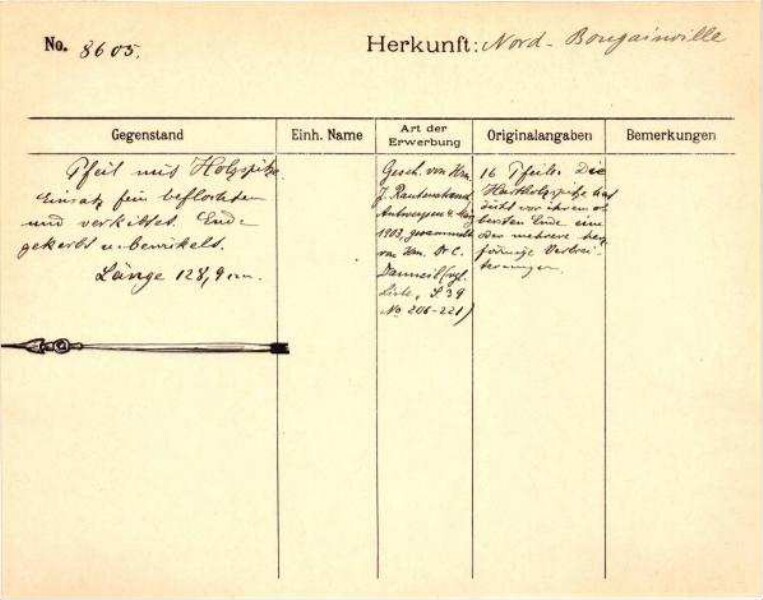 No. 8605.
Herkunft: Nord-Bougainville
Gegenstand
Einh. Name
Art der
Erwerbung
Originalangaben
Bemerkungen
Pfeil mit Holzspitze.
Einsatz fein beflochten
und verkittet. Ende
gekerbt u. bewickelt.
Länge 128,9 cm.
Gesch. von Hrn.
J. Rautenstrauch
Antwerpen 4. May
1903, gesammelt
von Hrn. Dr C.
Danneil (vgl.
Liste, S. 39
No 206-221)
16 Pfeile. Die
Hartholzspitze hat
dicht vor ihrem o-
bersten Ende eine
oder mehrere
förmige Verbrei-
terungen.